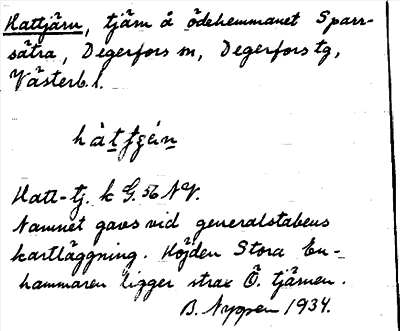 Hattjärn, tjärn å ödehemmanet Sparr-
sätra, Degerfors sn, Degerfors tg,
Västerb. l.
hàttjǽn
Hatt-tj. k G. 56 NV.
Namnet gavs vid generalstabens
kartläggning. Höjden Stora En-
hammaren ligger strax Ö. tjärnen.
B. Nyppen 1934.